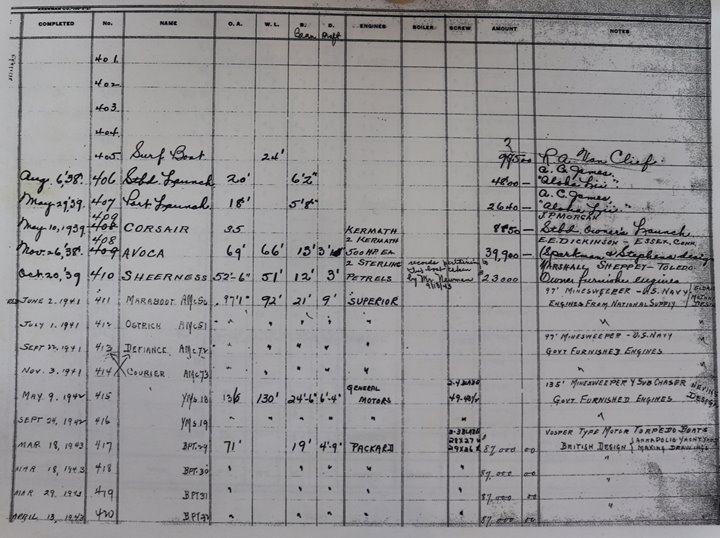 COMPLETED No. NAME O. A. W. L. B. D. ENGINES BOILER SCREW AMOUNT NOTES
Beam Draft
401
402
403
404
405 Surf Boat 24' R. A. Van Clief
A. C. James
Aug. 6,'38. 406 Stbd Launch 20' 6'2" 4800 — "Aloha Lii"
A. C. James
May 29,'39. 407 Port Launch 18' 2640 — "Aloha Lii"
409 J.P. MORGAN
May 10, 1939 408 CORSAIR 35 KERMATH 8850 — Stbd Owner's Launch
408 2 KERMATH E.E. DICKINSON - ESSEX, CONN.
Nov. 26,'38. 409 AVOCA 69' 66' 13' 500 HP EA 39,900 — (Sparkman & Stephens design
2 STERLING MARSHALL SHEPPET - TOLEDO
Oct. 20,'39 410 SHEERNESS 52'-6" 51' 12' 3' PETRELS records pertaining to this boat taken by Mr. Newman 23000 Owner furnished engines
97' MINESWEEPER - U.S. NAVY
JUNE 2, 1941 411 MARABOUT AMc50 97'1" 92' 21' 9' SUPERIOR ENGINES FROM NATIONAL SUPPLY
JULY 1, 1941 412 OSTRICH AMc51 " " " " " "
97' MINESWEEPER - U.S. NAVY
SEPT 22, 1941 413 DEFIANCE AMc72 " " " " " GOVT FURNISHED ENGINES
NOV. 3, 1941 414 COURIER AMc73 " " " " " "
135' MINESWEEPER & SUB CHASER NEVINS DESIGN
MAY 9, 1942 415 YMS.18 136 130' 24'-6" 6'-4" GENERAL MOTORS GOVT FURNISHED ENGINES
SEPT 24, 1942 416 YMS.19 " " " " " " "
VOSPER TYPE MOTOR TORPEDO BOATS
MAR 18, 1943 417 BPT.29 71' 19' 4'-9" PACKARD 87,000 00 BRITISH DESIGN { ANNAPOLIS YACHT YARD MAKING DRAWINGS
MAR 18, 1943 418 BPT.30 " " " " 87,000 00 "
MAR 29, 1943 419 BPT.31 " " " " 87,000 00 "
APRIL 13, 1943 420 BPT.32 " " " " 87,000 00 "